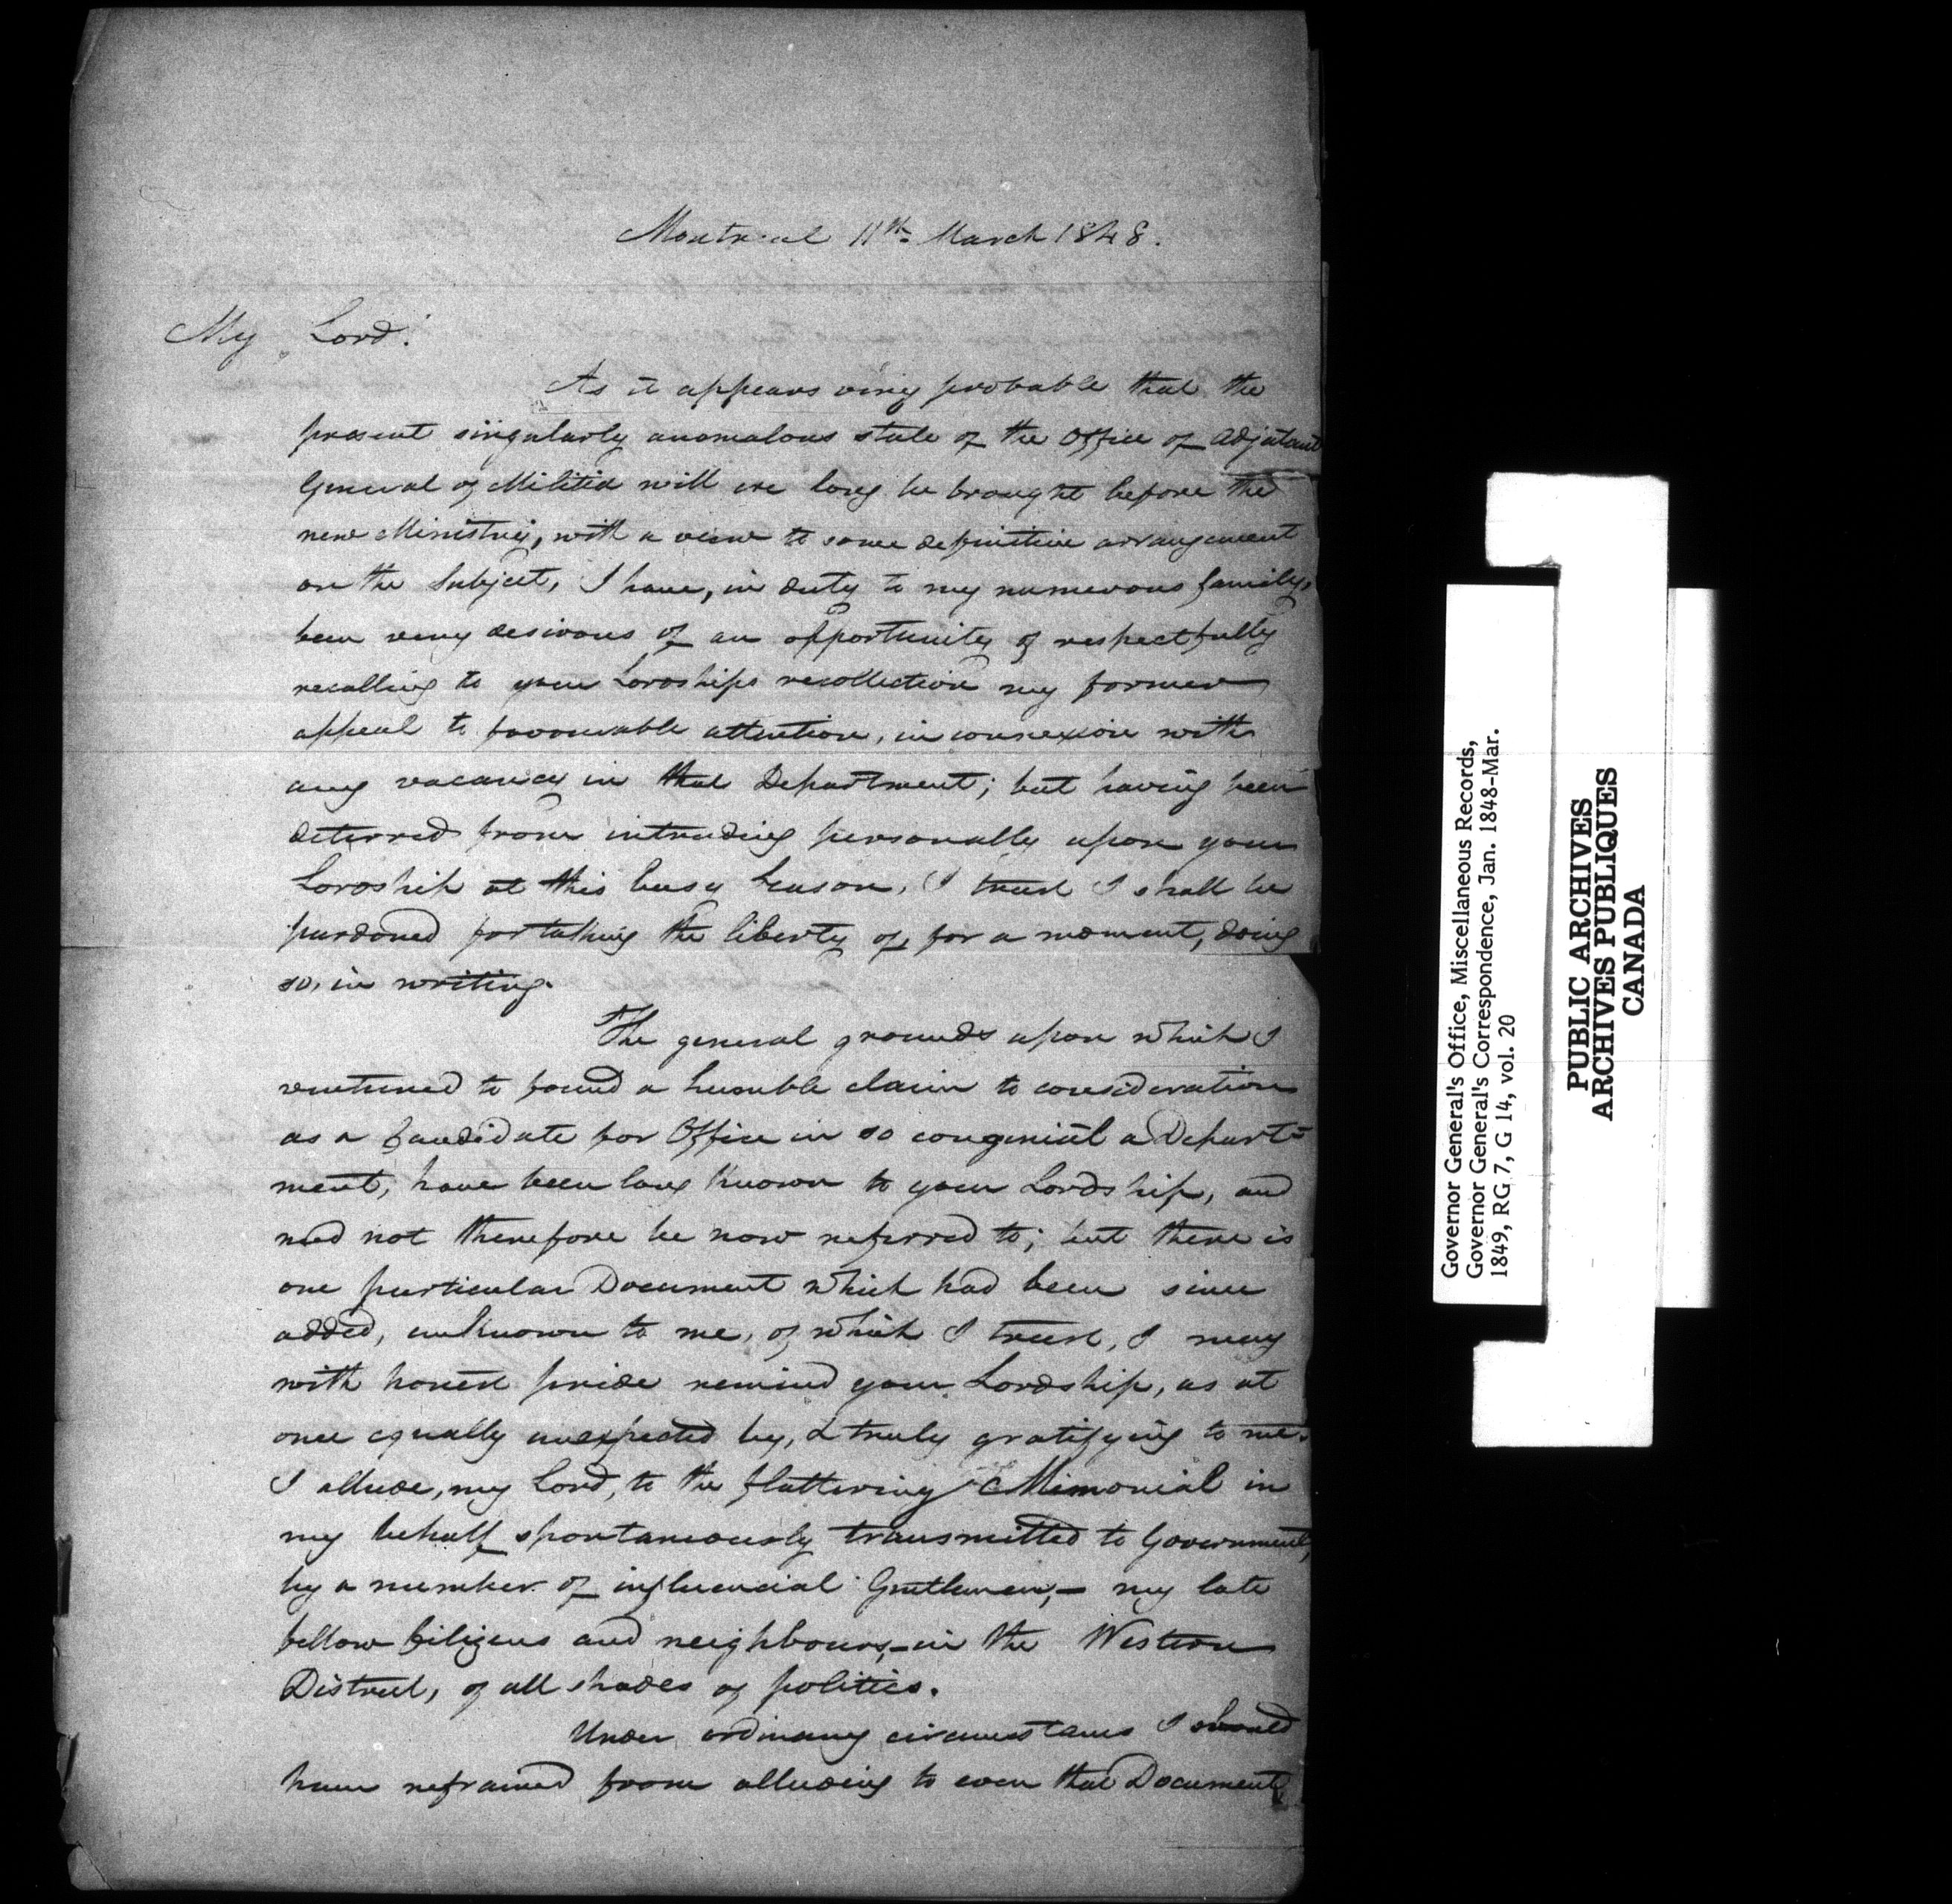 Montreal 11th March 1848.
My Lord!
As it appears very probable that the
present singularly anomalous state of the Office of Adjutant
General of Militia will ere long be brought before the
new Ministry, with a view to some definitive arrangement
on the Subject, I have, in duty to my numerous family,
been very desirous of an opportunity of respectfully
recalling to your Lordships recollection my former
appeal to favourable attention, in connexion with
any vacancy in that Department; but having been
deterred from intruding personally upon your
Lordship at this busy Season, I trust I shall be
pardoned for taking the liberty of, for a moment, doing
so, in writing.
The general grounds upon which I
ventured to found a humble claim to consideration
as a Candidate for Office in so congenial a Depart=
ment, have been long known to your Lordship, and
need not therefore be now referred to; but there is
one particular Document which had been since
added, unknown to me, of which I trust, I may
with honest pride remind your Lordship, as at
once equally unexpected by, & truly gratifying to me.
I allude, my Lord, to the flattering Memorial in
my behalf spontaneously transmitted to Government,
by a number of influencial Gentlemen,— my late
fellow Citizens and neighbours,—in the Western
District, of all shades of politics.
Under ordinary circumstances I should
have refrained from alluding to even that Document
Governor General's Office, Miscellaneous Records,
Governor General's Correspondence, Jan. 1848-Mar.
1849, RG 7, G 14, vol. 20
PUBLIC ARCHIVES
ARCHIVES PUBLIQUES
CANADA